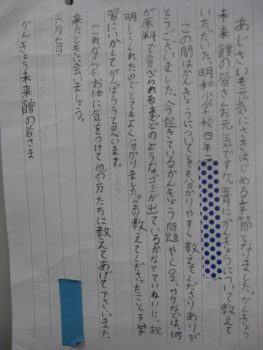 あじさいも元気にさきはじめる季節となりました。かんきょう
未来館の皆さんお元気ですか。五月にかんきょうについて教えて
いただいた、明和小学校四年二
この間はかんきょうについてとても分かりやすく教えてくださりありが
とうございました。今起きているかんきょう問題やCO2、ウナギなどは、何
が原料で食べられるまでどのようなゴミが出ているかなどていねいに、説
明してくれたのでとてもよく分かりました。この教えてくださったことを学
習にいかしてがんばろうと思います。
これからもお体に気をつけて他の方たちに教えてあげて下さい。また
来たときに会いましょう。
六月七日
かんきょう未来館の皆さま